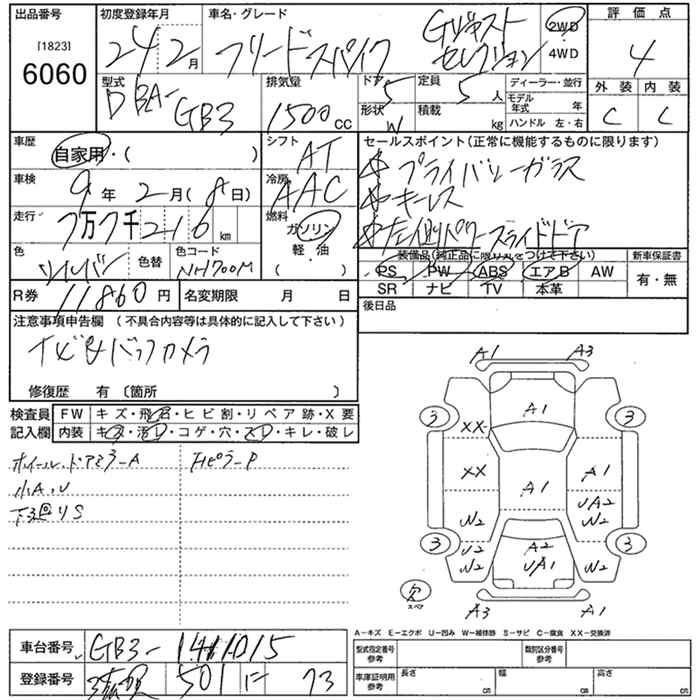 出品番号 初度登録年月 車名・グレード 評価点
[1823] 6060 24 2月 フリードスパイク Gジャスト セレクション 2WD 4WD 4
型式 DBA-GB3 排気量 1500cc ドア 5 定員 5人 ディーラー・並行 外装 内装
形状 W 積載 kg モデル年式 年 ハンドル 左・右 C C
車歴 自家用・( ) シフト AT セールスポイント(正常に機能するものに限ります)
☆プライバシーガラス
車検 9年 2月(8日) 冷房 AAC ☆キーレス
走行 7万7千216km 燃料 ガソリン 軽・油 ( ) ☆左側パワースライドドア
色 シルバー 色替 色コード NH700M 装備品(純正品に限り○をつけて下さい) 新車保証書
PS PW ABS エアB AW 有・無
R券 11860円 名変期限 月 日 SR ナビ TV 本革
後日品
注意事項申告欄 (不具合内容等は具体的に記入して下さい)
ナビ&バックカメラ
修復歴 有 〔箇所 〕
検査員 FW キズ・飛石・ヒビ割・リペア跡・X要
記入欄 内装 キズ・汚レ・コゲ・穴・スレ・キレ・破レ
ホイール、ドアミラーA
小A、U
下廻りS
A1 A3
A1
3 3
XX
XX A1 A1
UA2
W2 W2
3 3
U2 A2
W2 UA1 W2
欠 スペア
A3 A1
A−キズ E−エクボ U−凹み W−補修跡 S−サビ C−腐食 XX−交換済
車台番号 GB3-1411015 型式指定番号 参考 類別区分番号 参考
登録番号 501 に 73 車庫証明用 参考 長さ cm 幅 cm 高さ cm